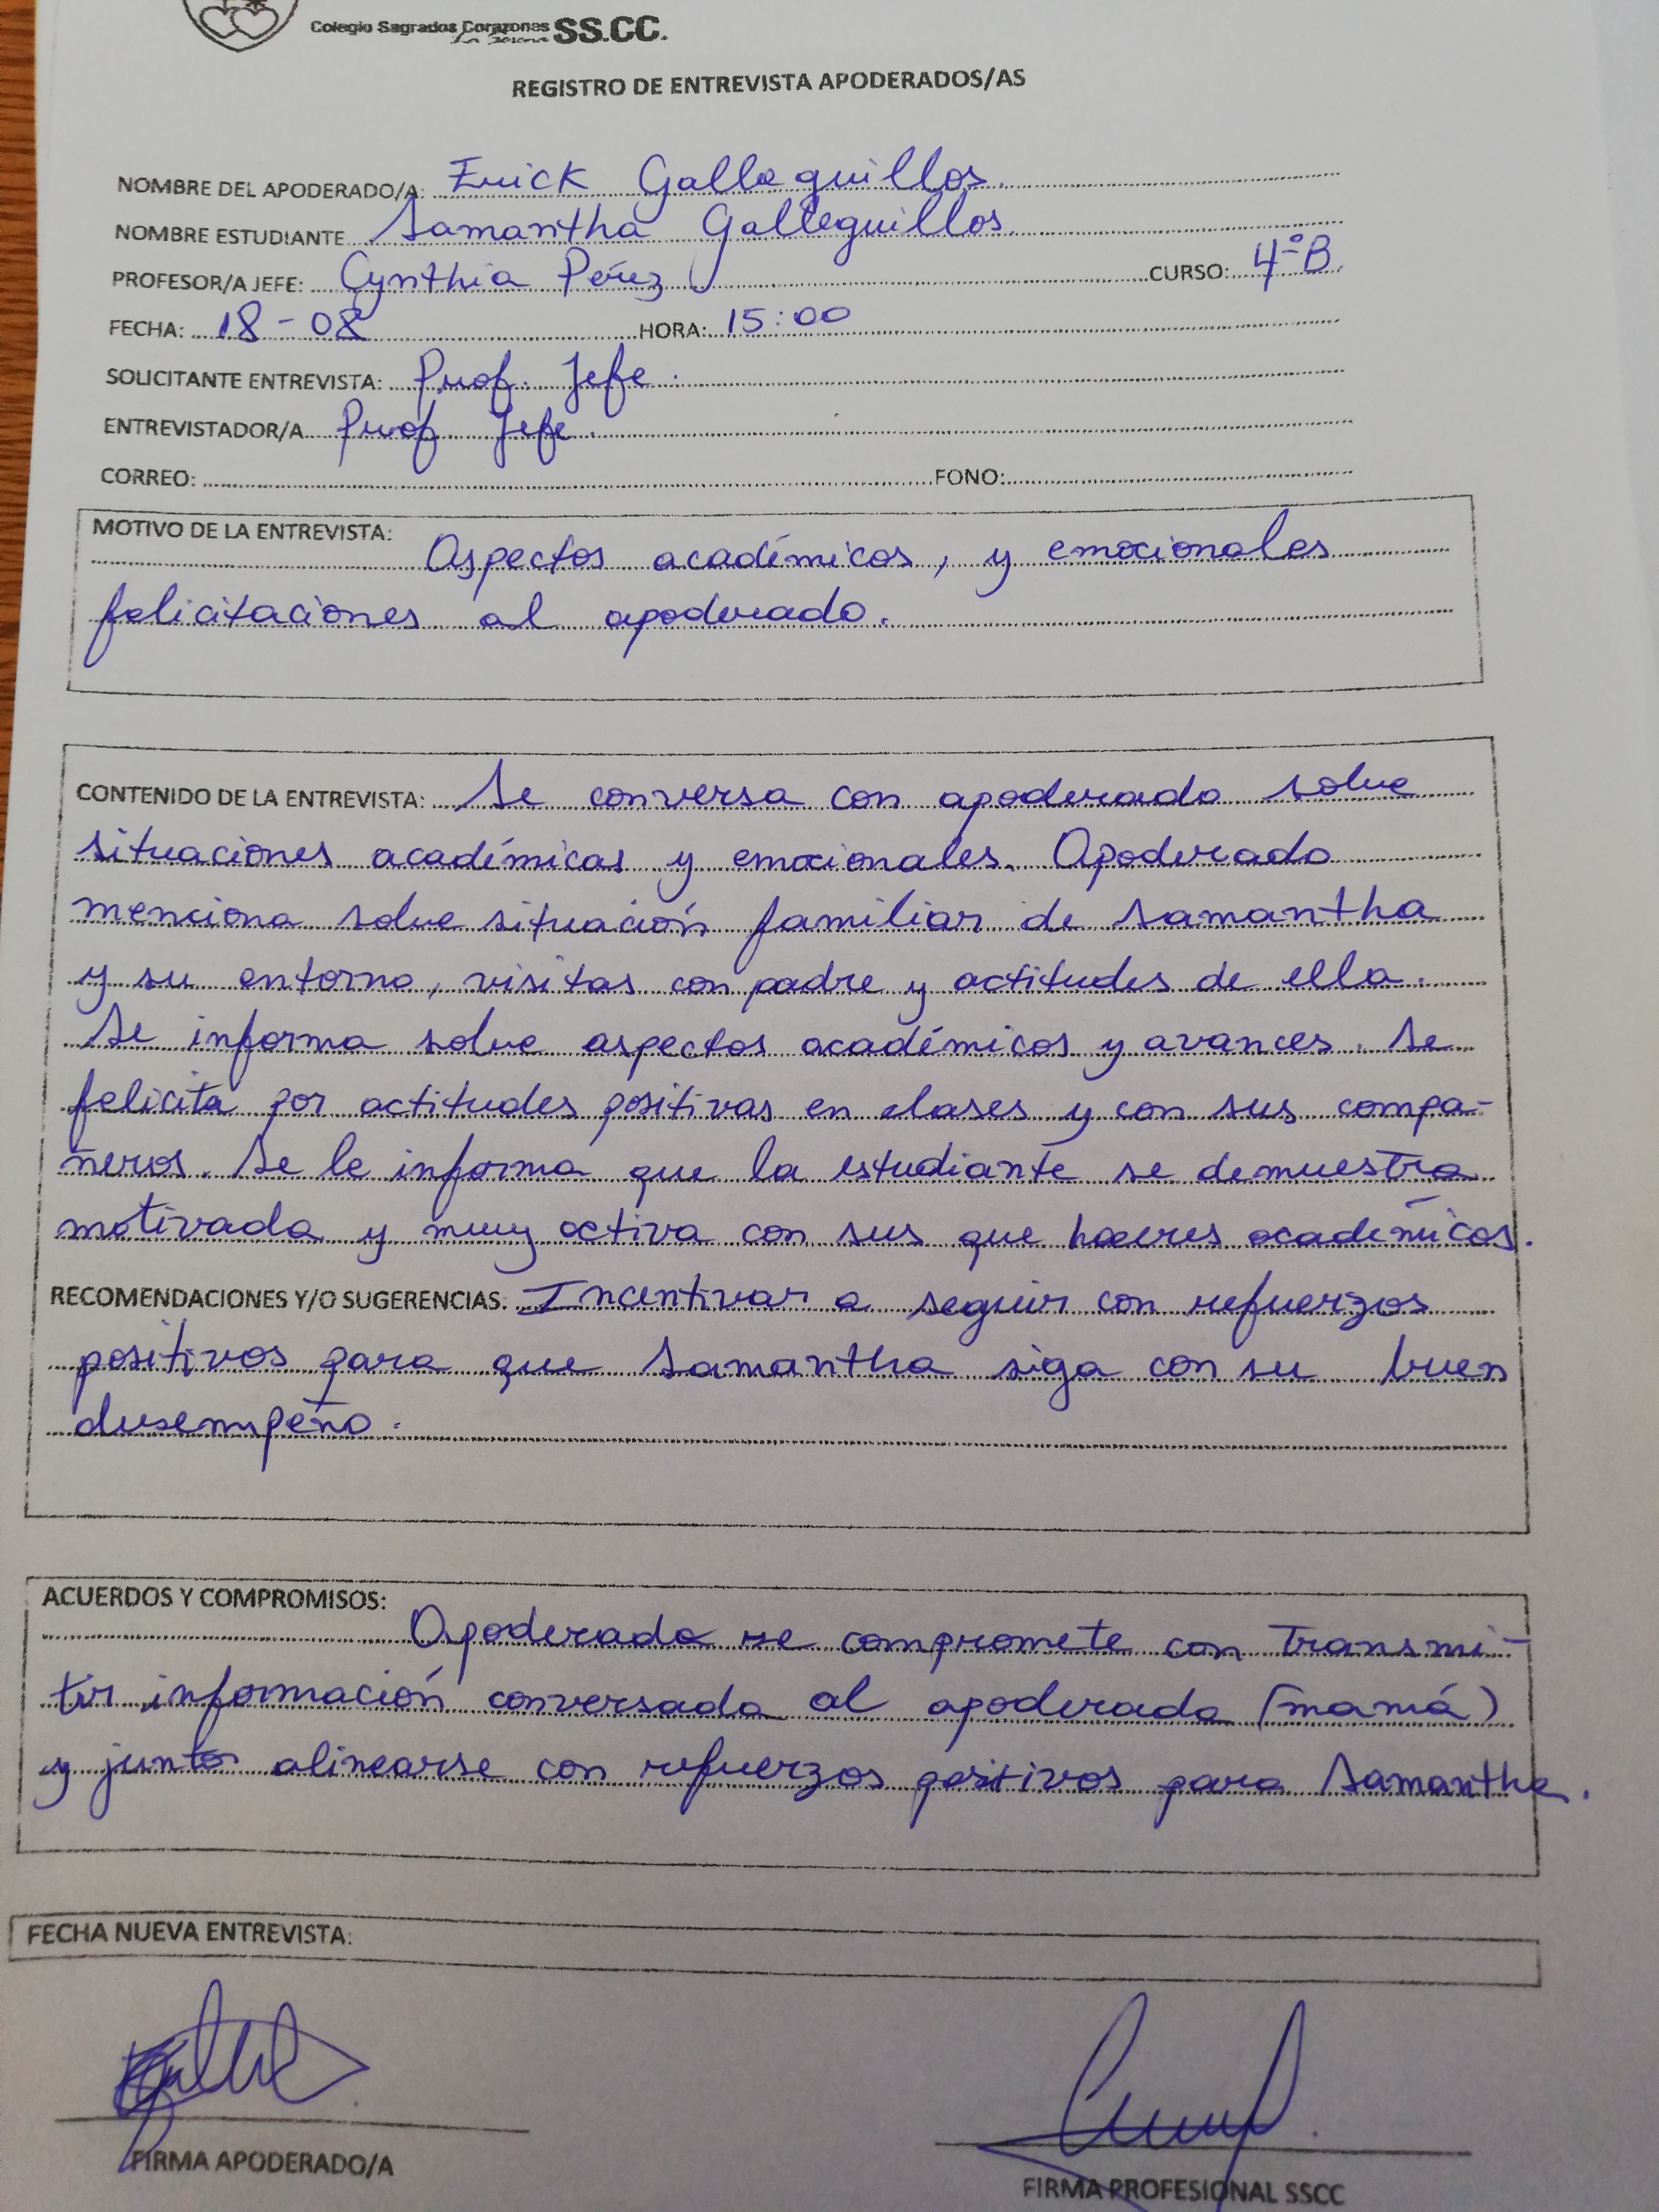 Colegio Sagrados Corazones SS.CC.
La Serena
REGISTRO DE ENTREVISTA APODERADOS/AS
NOMBRE DEL APODERADO/A: Erick Galleguillos.
NOMBRE ESTUDIANTE Samantha Galleguillos.
PROFESOR/A JEFE: Cynthia Pérez CURSO: 4°B.
FECHA: 18-08 HORA: 15:00
SOLICITANTE ENTREVISTA: Prof. Jefe.
ENTREVISTADOR/A Prof. Jefe.
CORREO: FONO:
MOTIVO DE LA ENTREVISTA: Aspectos académicos, y emocionales
felicitaciones al apoderado.
CONTENIDO DE LA ENTREVISTA: Se conversa con apoderado sobre
situaciones académicas y emocionales. Apoderado
menciona sobre situación familiar de Samantha
y su entorno, visitas con padre y actitudes de ella.
Se informa sobre aspectos académicos y avances. Se
felicita por actitudes positivas en clases y con sus compa-
ñeros. Se le informa que la estudiante se demuestra
motivada y muy activa con sus que haceres académicos.
RECOMENDACIONES Y/O SUGERENCIAS: Incentivar a seguir con refuerzos
positivos para que Samantha siga con su buen
desempeño.
ACUERDOS Y COMPROMISOS: Apoderado se compromete con transmi-
tir información conversada al apoderada (mamá)
y juntos alinearse con refuerzos positivos para Samantha.
FECHA NUEVA ENTREVISTA:
FIRMA APODERADO/A
FIRMA PROFESIONAL SSCC